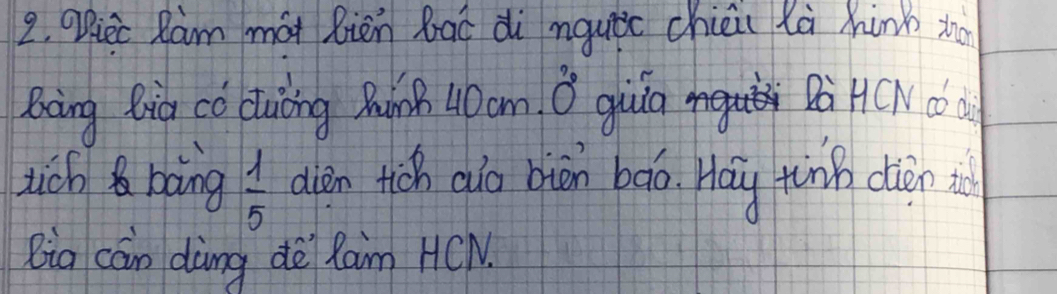 2. Việc làm một biển báo đi ngược chiều là hình tròn
bằng bìa có đường kính 40 cm. Ở giữa là HCN có diện
tích bằng 1/5 diện tích của biển báo. Hãy tính diện tích
bìa cần dùng để làm HCN.